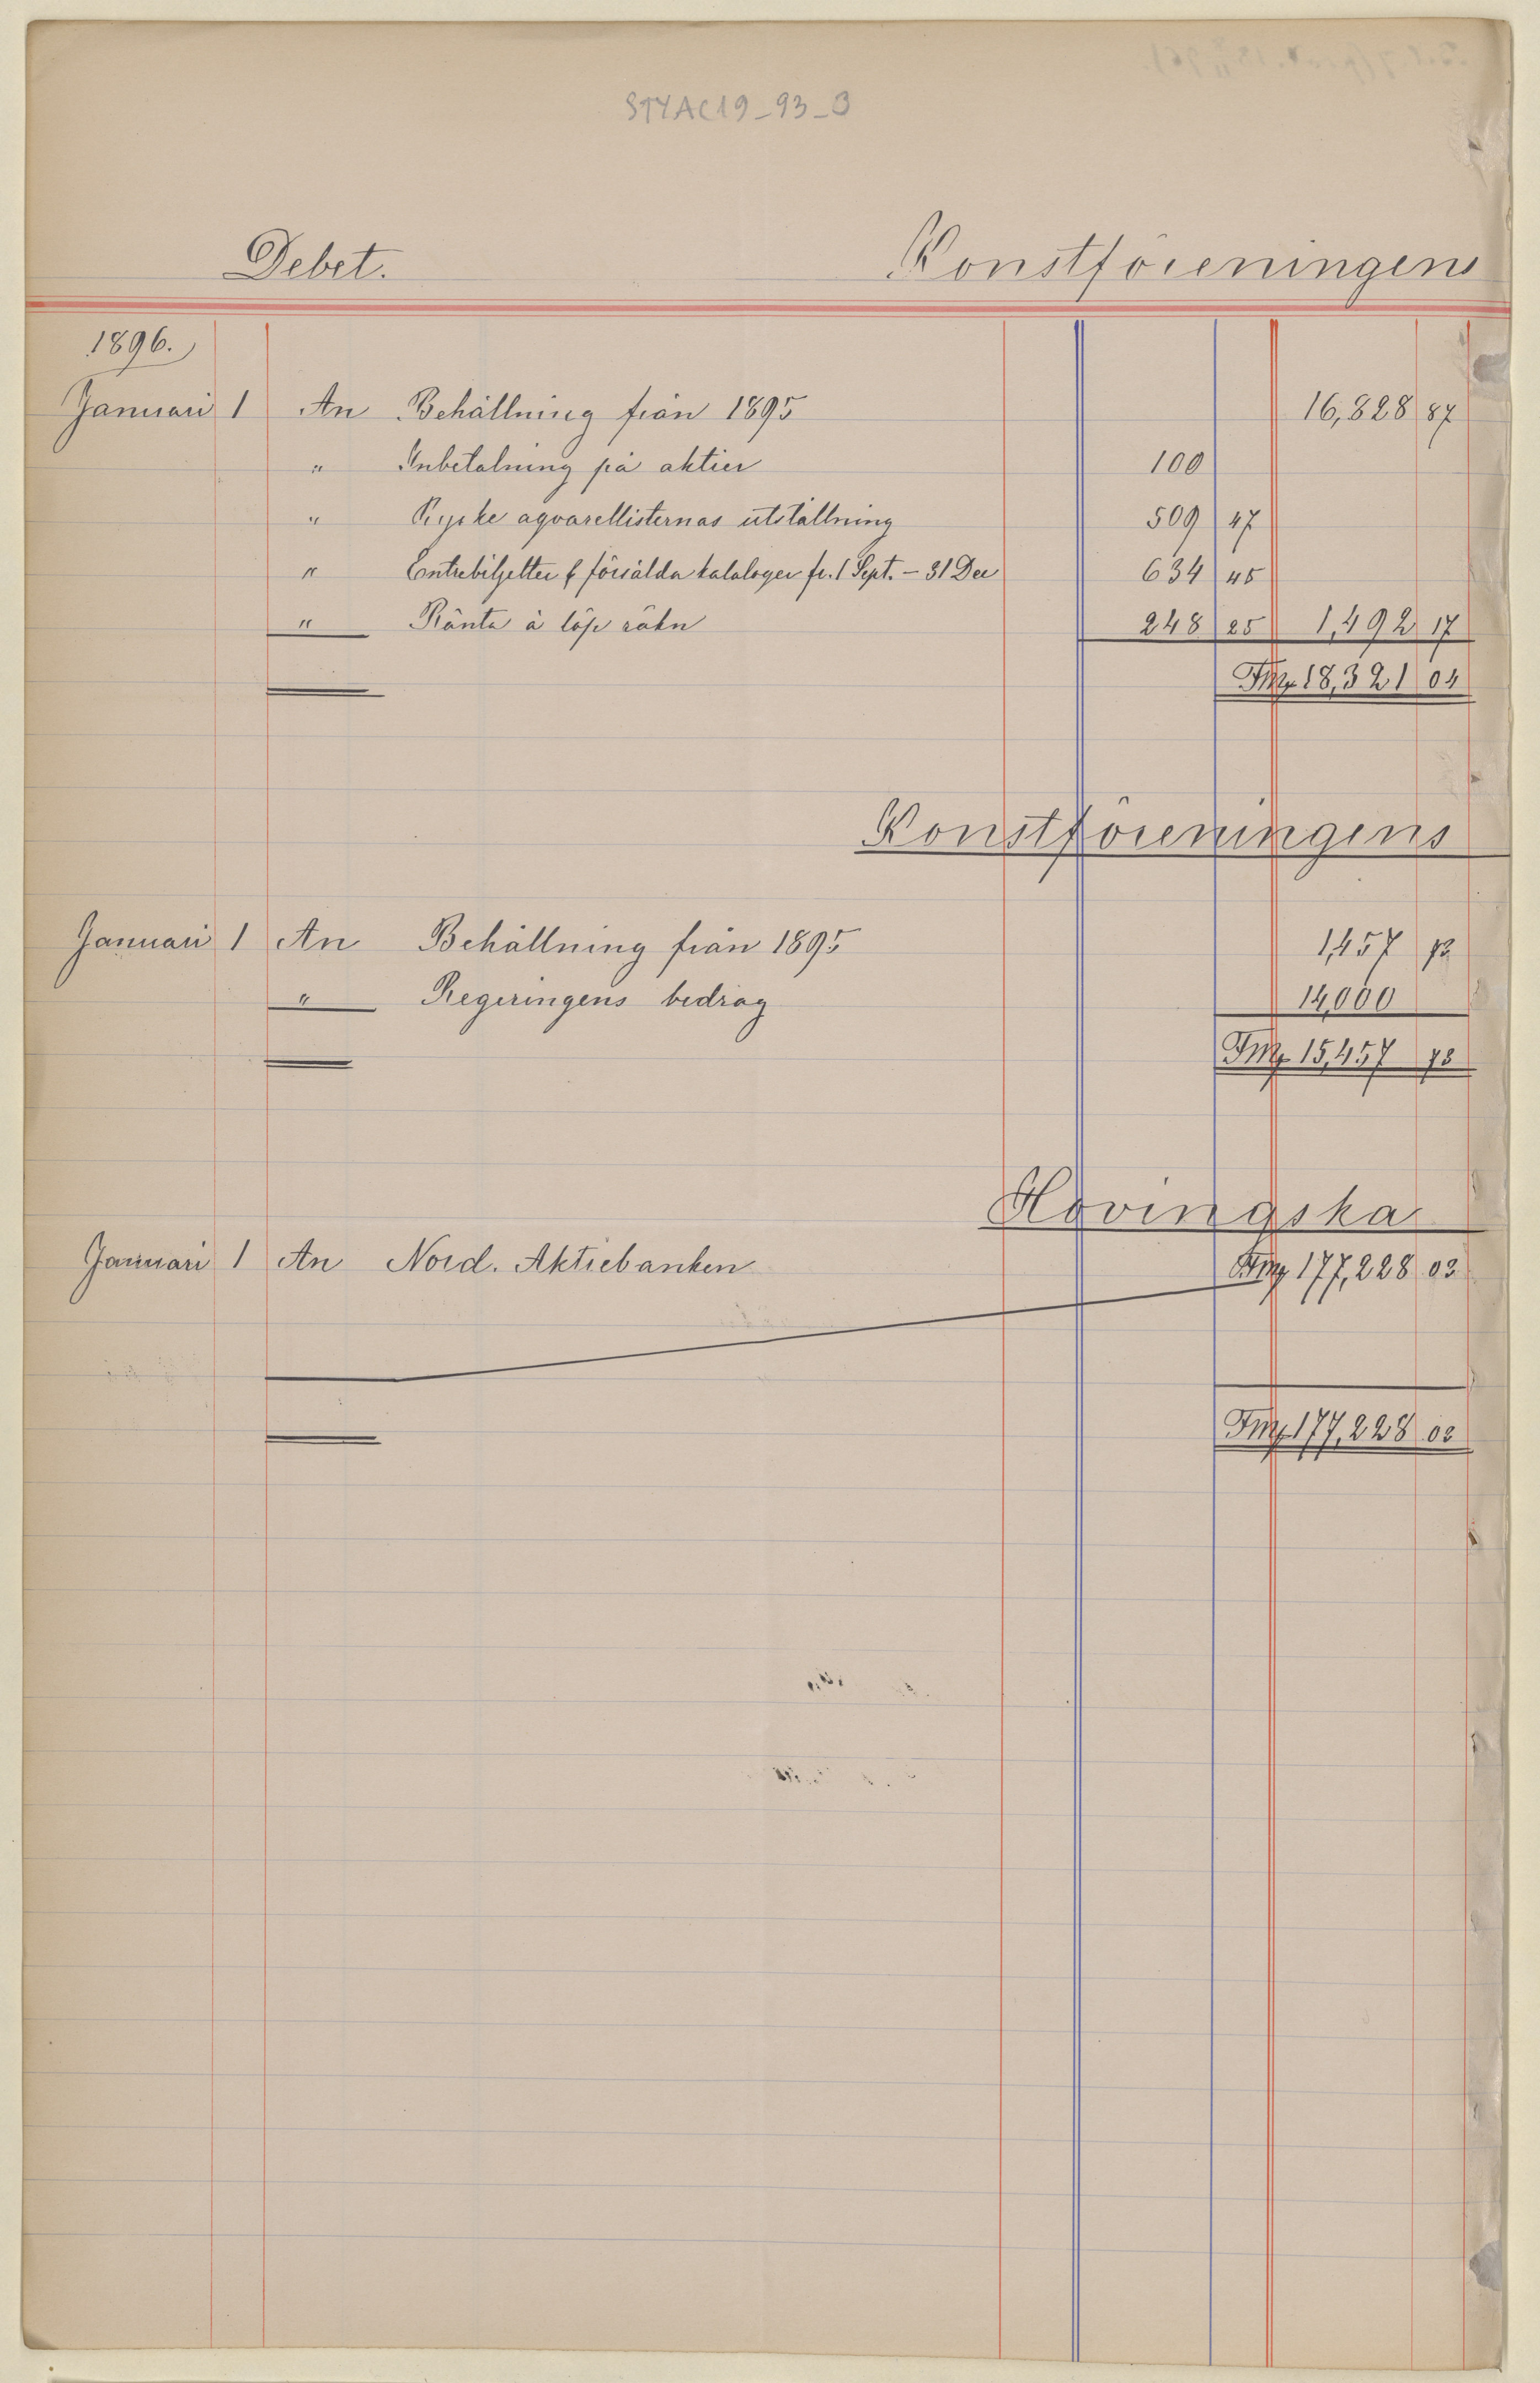 STYAC19_93_3
Debet. Konstföreningens
1896.
Januari 1 An Behållning från 1895 16,828 87
" Inbetalning på aktier 100
" Ryske aqvarellisternas utställning 509 47
" Entrébiljetter & försålda kataloger fr. 1 Sept. – 31 Dec 634 45
" Ränta à löp räkn 248 25 1,492 17
Fmk 18,321 04
Konstföreningens
Januari 1 An Behållning från 1895 1,457 73
" Regeringens bedrag 14,000
Fmk 15,457 73
Hovingska
Januari 1 An Nord. Aktiebanken Fmk 177,228 03
Fmk 177,228 03